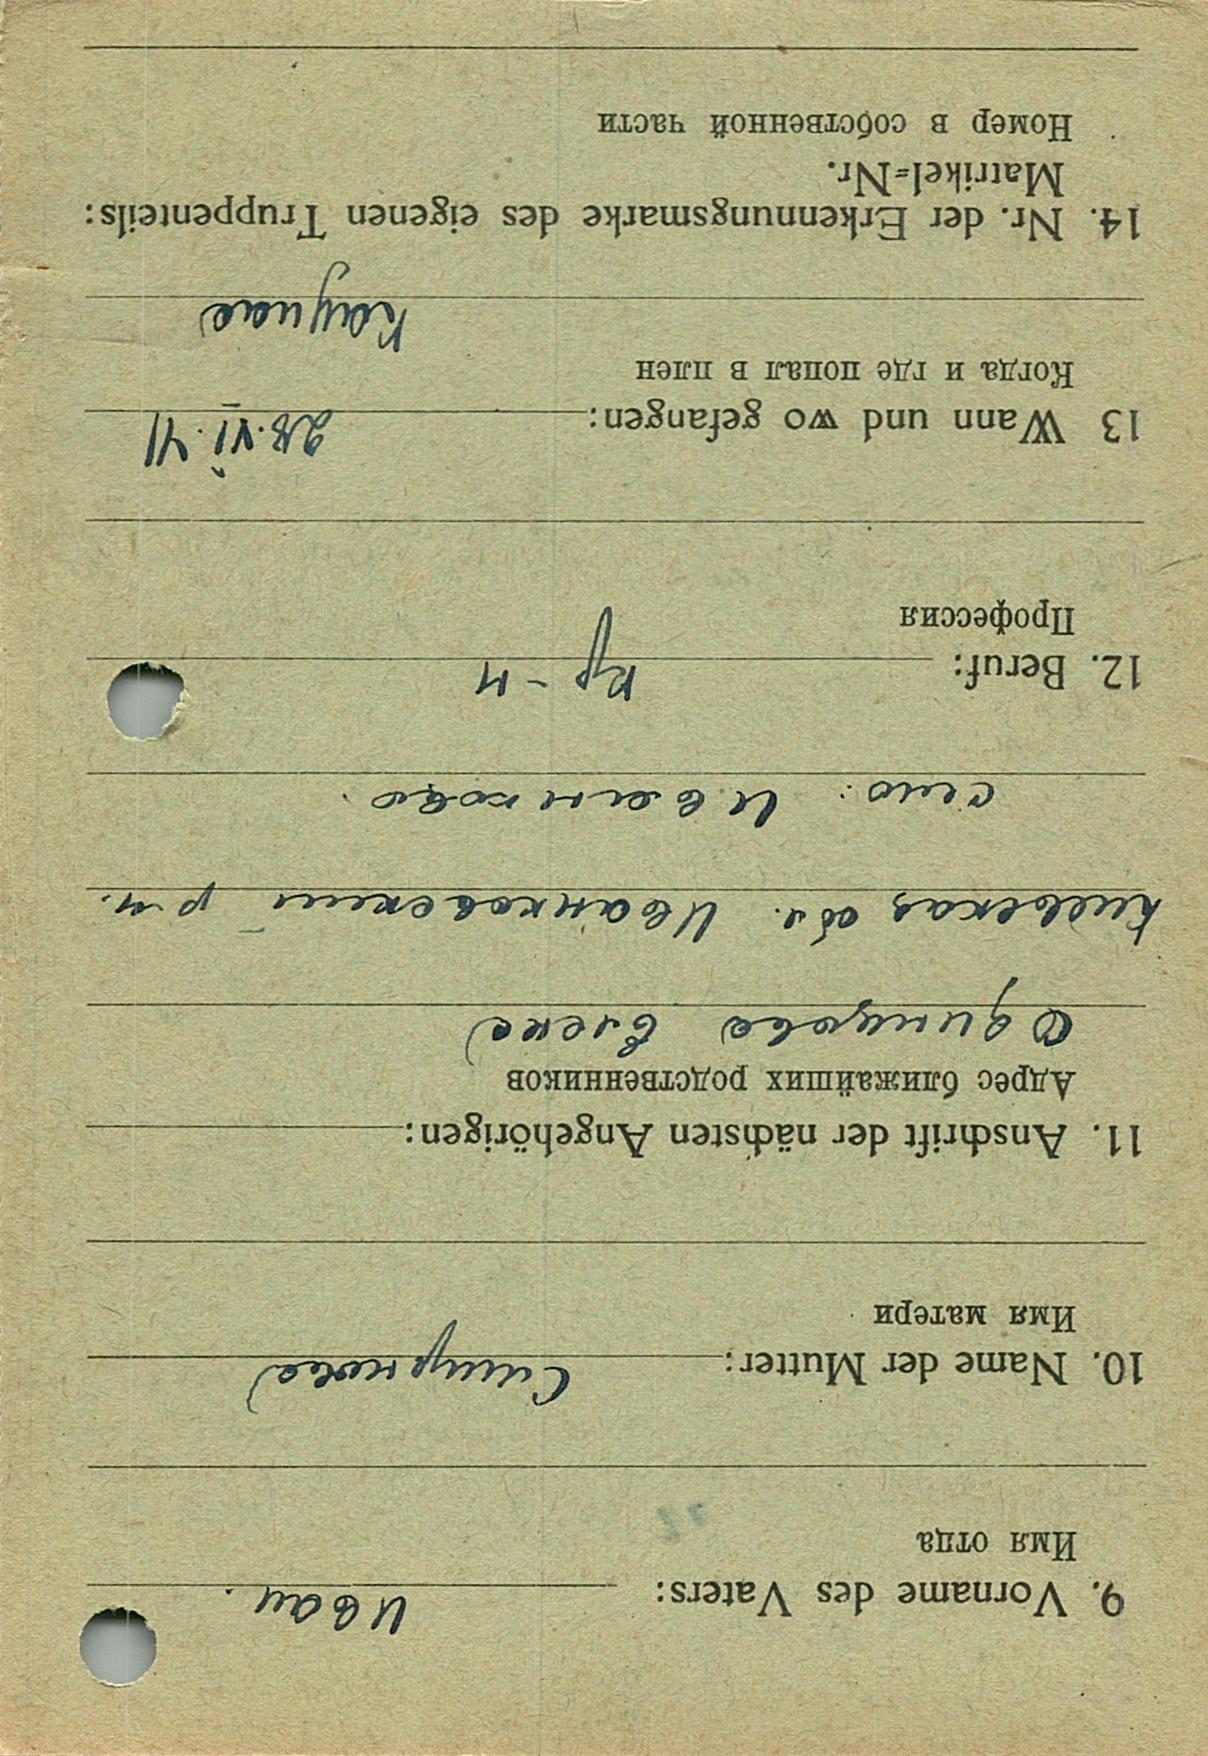 9. Vorname des Vaters: Иван.
Имя отца
10. Name der Mutter:
Имя матери
11. Anschrift der nächsten Angehörigen:
Адрес ближайших родственников
Одинцова
Киевская обл. Иванковский р-н.
село: Иванково.
12. Beruf: кр-н
Профессия
13 Wann und wo gefangen: 28.VI.41
Когда и где попал в плен
Каунас
14. Nr. der Erkennungsmarke des eigenen Truppenteils:
Matrikel=Nr.
Номер в собственной части